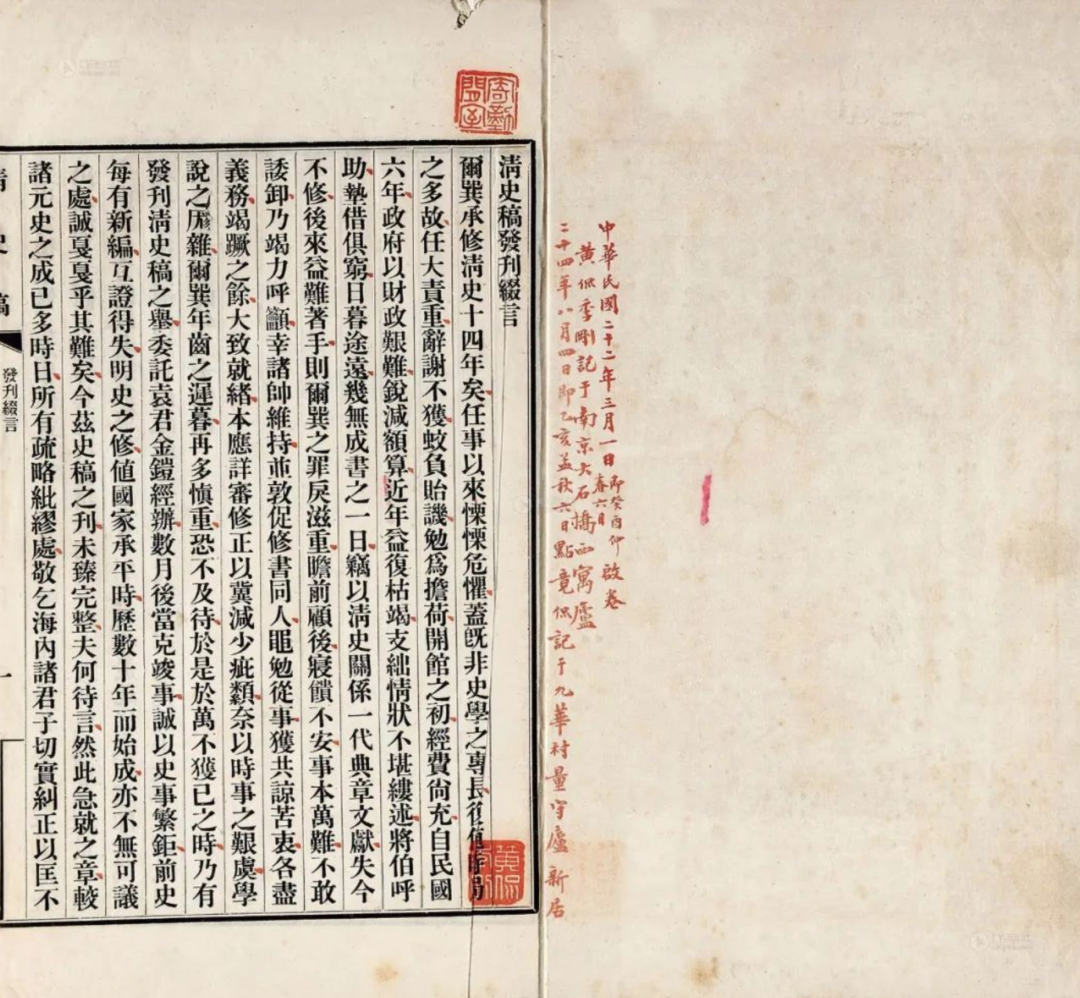 中華民國二十二年三月一日即癸酉仲春六日啟卷
黃侃季剛記于南京大石橋西寓廬
二十四年八月四日即乙亥孟秋六日點竟侃記于九華村量守廬新居
清史稿發刊綴言
爾巽承修清史十四年矣任事以來慄慄危懼蓋旣非史學之專長復值時局
之多故任大責重辭謝不獲蚊負貽譏勉爲擔荷開館之初經費尙充自民國
六年政府以財政艱難銳減額算近年益復枯竭支絀情狀不堪縷述將伯呼
助墊借俱窮日暮途遠幾無成書之一日竊以清史關係一代典章文獻失今
不修後來益難著手則爾巽之罪戾滋重瞻前顧後寢饋不安事本萬難不敢
諉卸乃竭力呼籲幸諸帥維持並敦促修書同人黽勉從事獲共諒苦衷各盡
義務竭蹶之餘大致就緒本應詳審修正以冀減少疵纇奈以時事之艱虞學
說之厖雜爾巽年齒之遲暮再多愼重恐不及待於是於萬不獲已之時乃有
發刊清史稿之舉委託袁君金鎧經辦數月後當克竣事誠以史事繁鉅前史
每有新編互證得失明史之修値國家承平時歷數十年而始成亦不無可議
之處誠戛戛乎其難矣今茲史稿之刊未臻完整夫何待言然此急就之章較
諸元史之成已多時日所有疏略紕繆處敬乞海內諸君子切實糾正以匡不
清史稿
發刊綴言
一